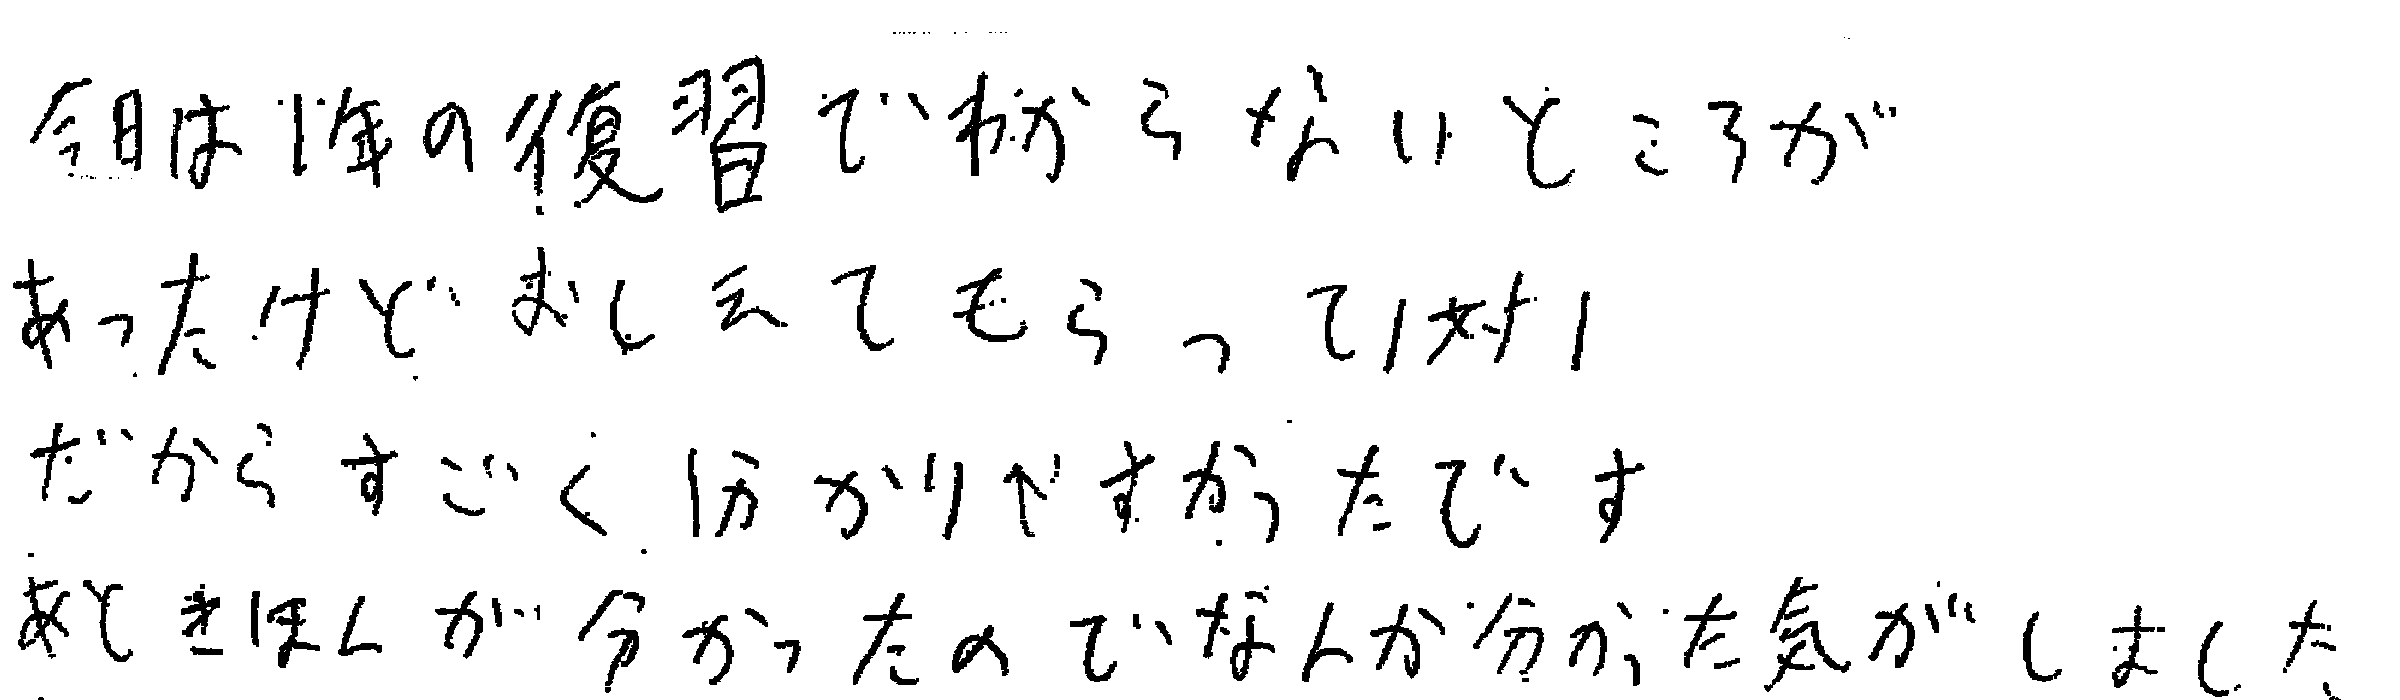 今日は1年の復習でわからないところが
あったけどおしえてもらって1対1
だからすごく分かりやすかったです
あときほんが分かったのでなんか分かった気がしました